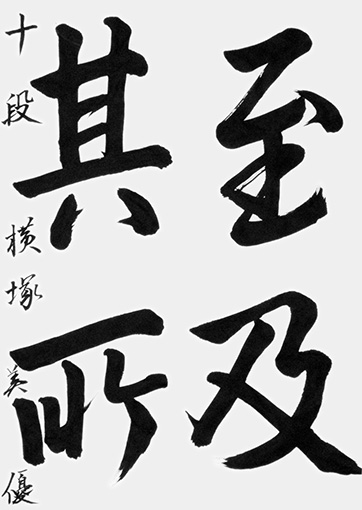 至及
其所
十段 横塚美優